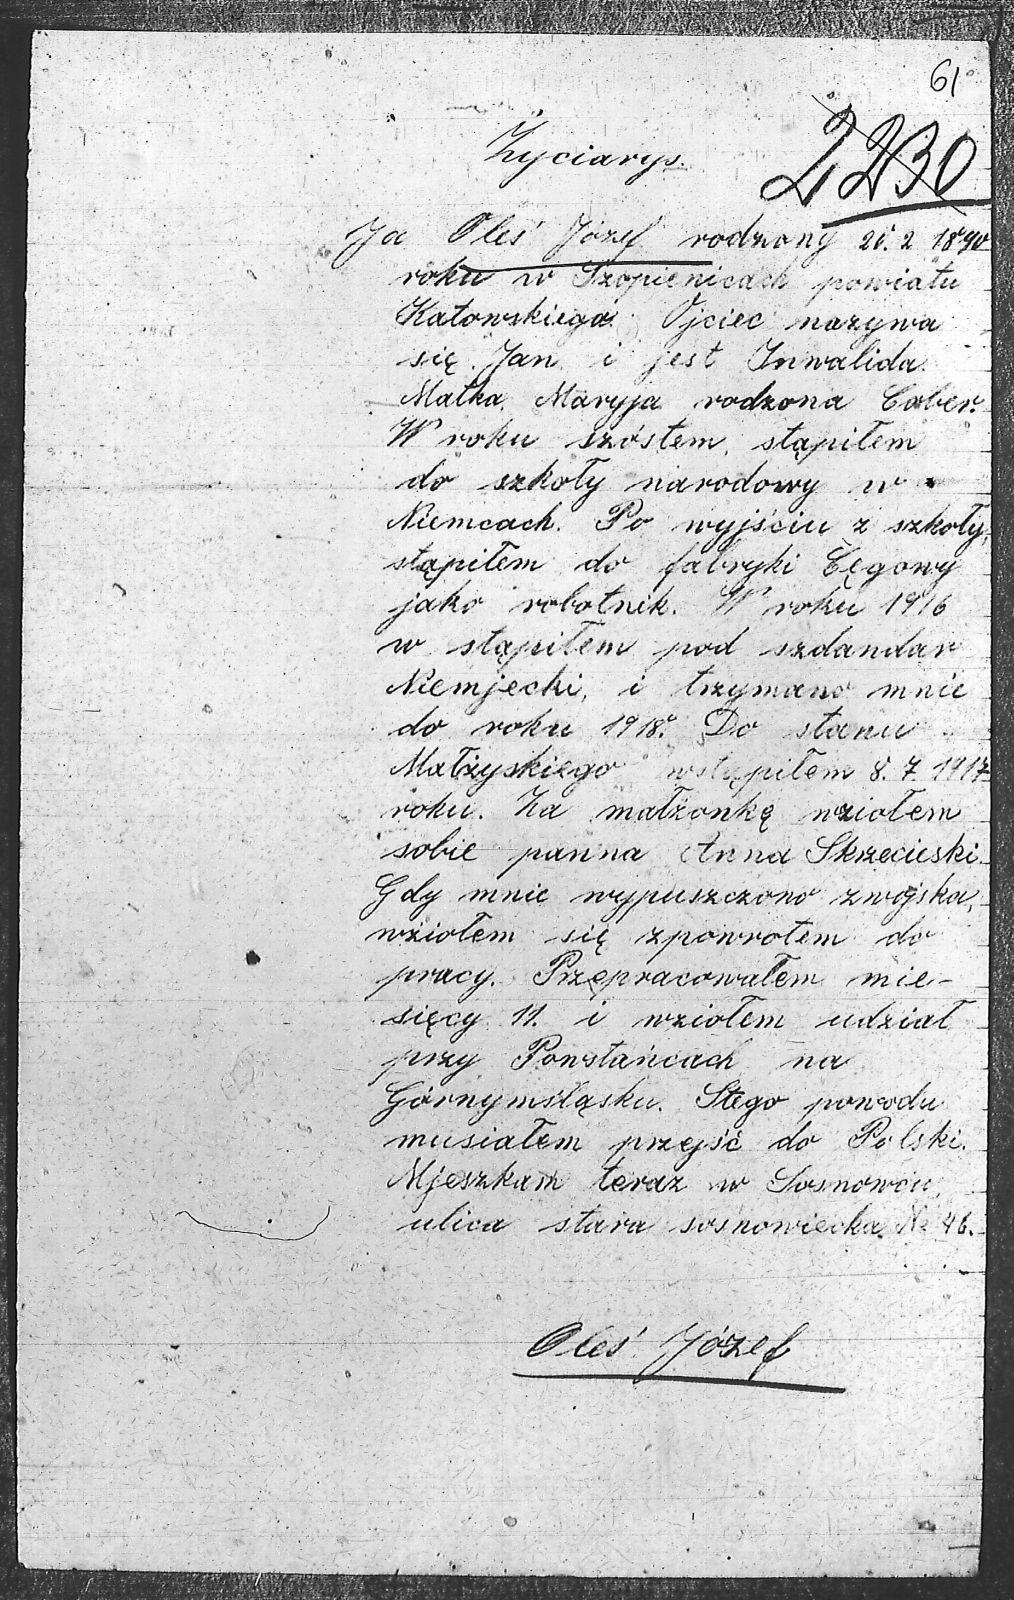 61
2230
Życiarys.
Ja Oleś Józef rodzony 20. 2 1890
roku w Szopienicach powiatu
Katowskiego. Ojciec nazywa
się Jan i jest Inwalida.
Matka Maryja rodzona
W roku szóstem, stąpiłem
do szkoły narodowy w
Niemcach. Po wyjściu z szkoły,
stąpiłem do fabryki
jako robotnik. W roku 1916
w stąpiłem pod szdandar
Niemjecki, i trzymano mnie
do roku 1918. Do stanu
Małżyskiego wstąpiłem 8. 7 1917
roku. Za małżonkę wziołem
sobie panna Anna Skrzecieski.
Gdy mnie wypuszczono zwojska,
wziołem się zpowrotem do
pracy. Przepracowałem mie-
sięcy 11. i wziołem udział
przy Powstańcach na
Górnymśląsku. Stego powodu
musiałem przejść do Polski.
Mjeszkam teraz w Sosnowcu,
ulica stara sosnowiecka № 46.
Oleś Józef